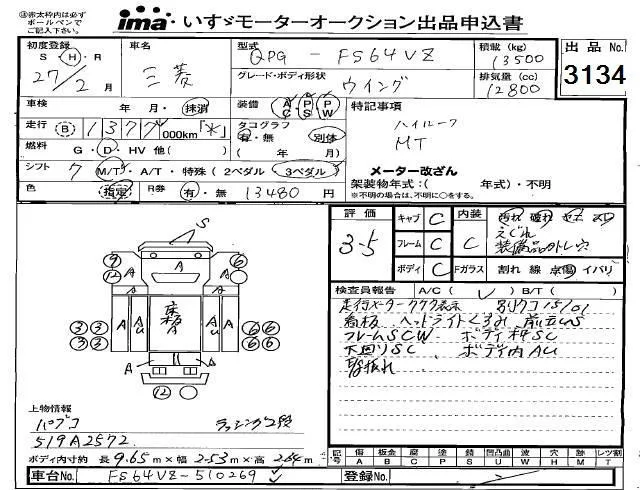 ※赤太枠内は必ず
ボールペンで
ご記入下さい。
ima・いすゞモーターオークション出品申込書
初度登録
S・H・R
27/2月
車名
三菱
型式
QPG - FS64VZ
積載 (kg)
13500
グレード・ボディ形状
ウイング
排気量 (cc)
12800
出品No.
3134
車検 年・月・抹消
装備 AC・PS・PW
特記事項
ハイルーフ
MT
メーター改ざん
走行 B 1377,000km「*」
タコグラフ
有・無 別体
( 年/ 月)
燃料 G・D・HV 他( )
シフト 7 M/T・A/T・特殊(2ペダル 3ペダル)
架装物年式:( 年式)・不明
※不明の場合は、不明に○をする。
色 指定 R券 有・無 13480円
評価
3-5
キャブ C 内装
フレーム C C
えぐれ
装備品外トレ穴
ボディ C Fガラス 割れ 線 イバリ
検査員報告 A/C( ✓ ) B/T( )
走行メーター777表示 別タコ15/01
看板 ヘッドライトくもみ
フレームSCW ボディ枠SC
下回りSC ボディ内AU
S
9
12
6
A
A
A
A
A
AU
AU
A
A
A
3 3
3 3
6 6
6 6
12
上物情報
パブコ
ラッシング2段
519A2572
ボディ内寸約 長 9.65m×幅 2.53m×高 2.64m
記号 傷 A 板金 B 腐 C 塗 P 錆 S 凹凸曲 U 波 W 穴 H 跡 M レツ割 T
車台No. FS64VZ-510269 ✓
登録No.